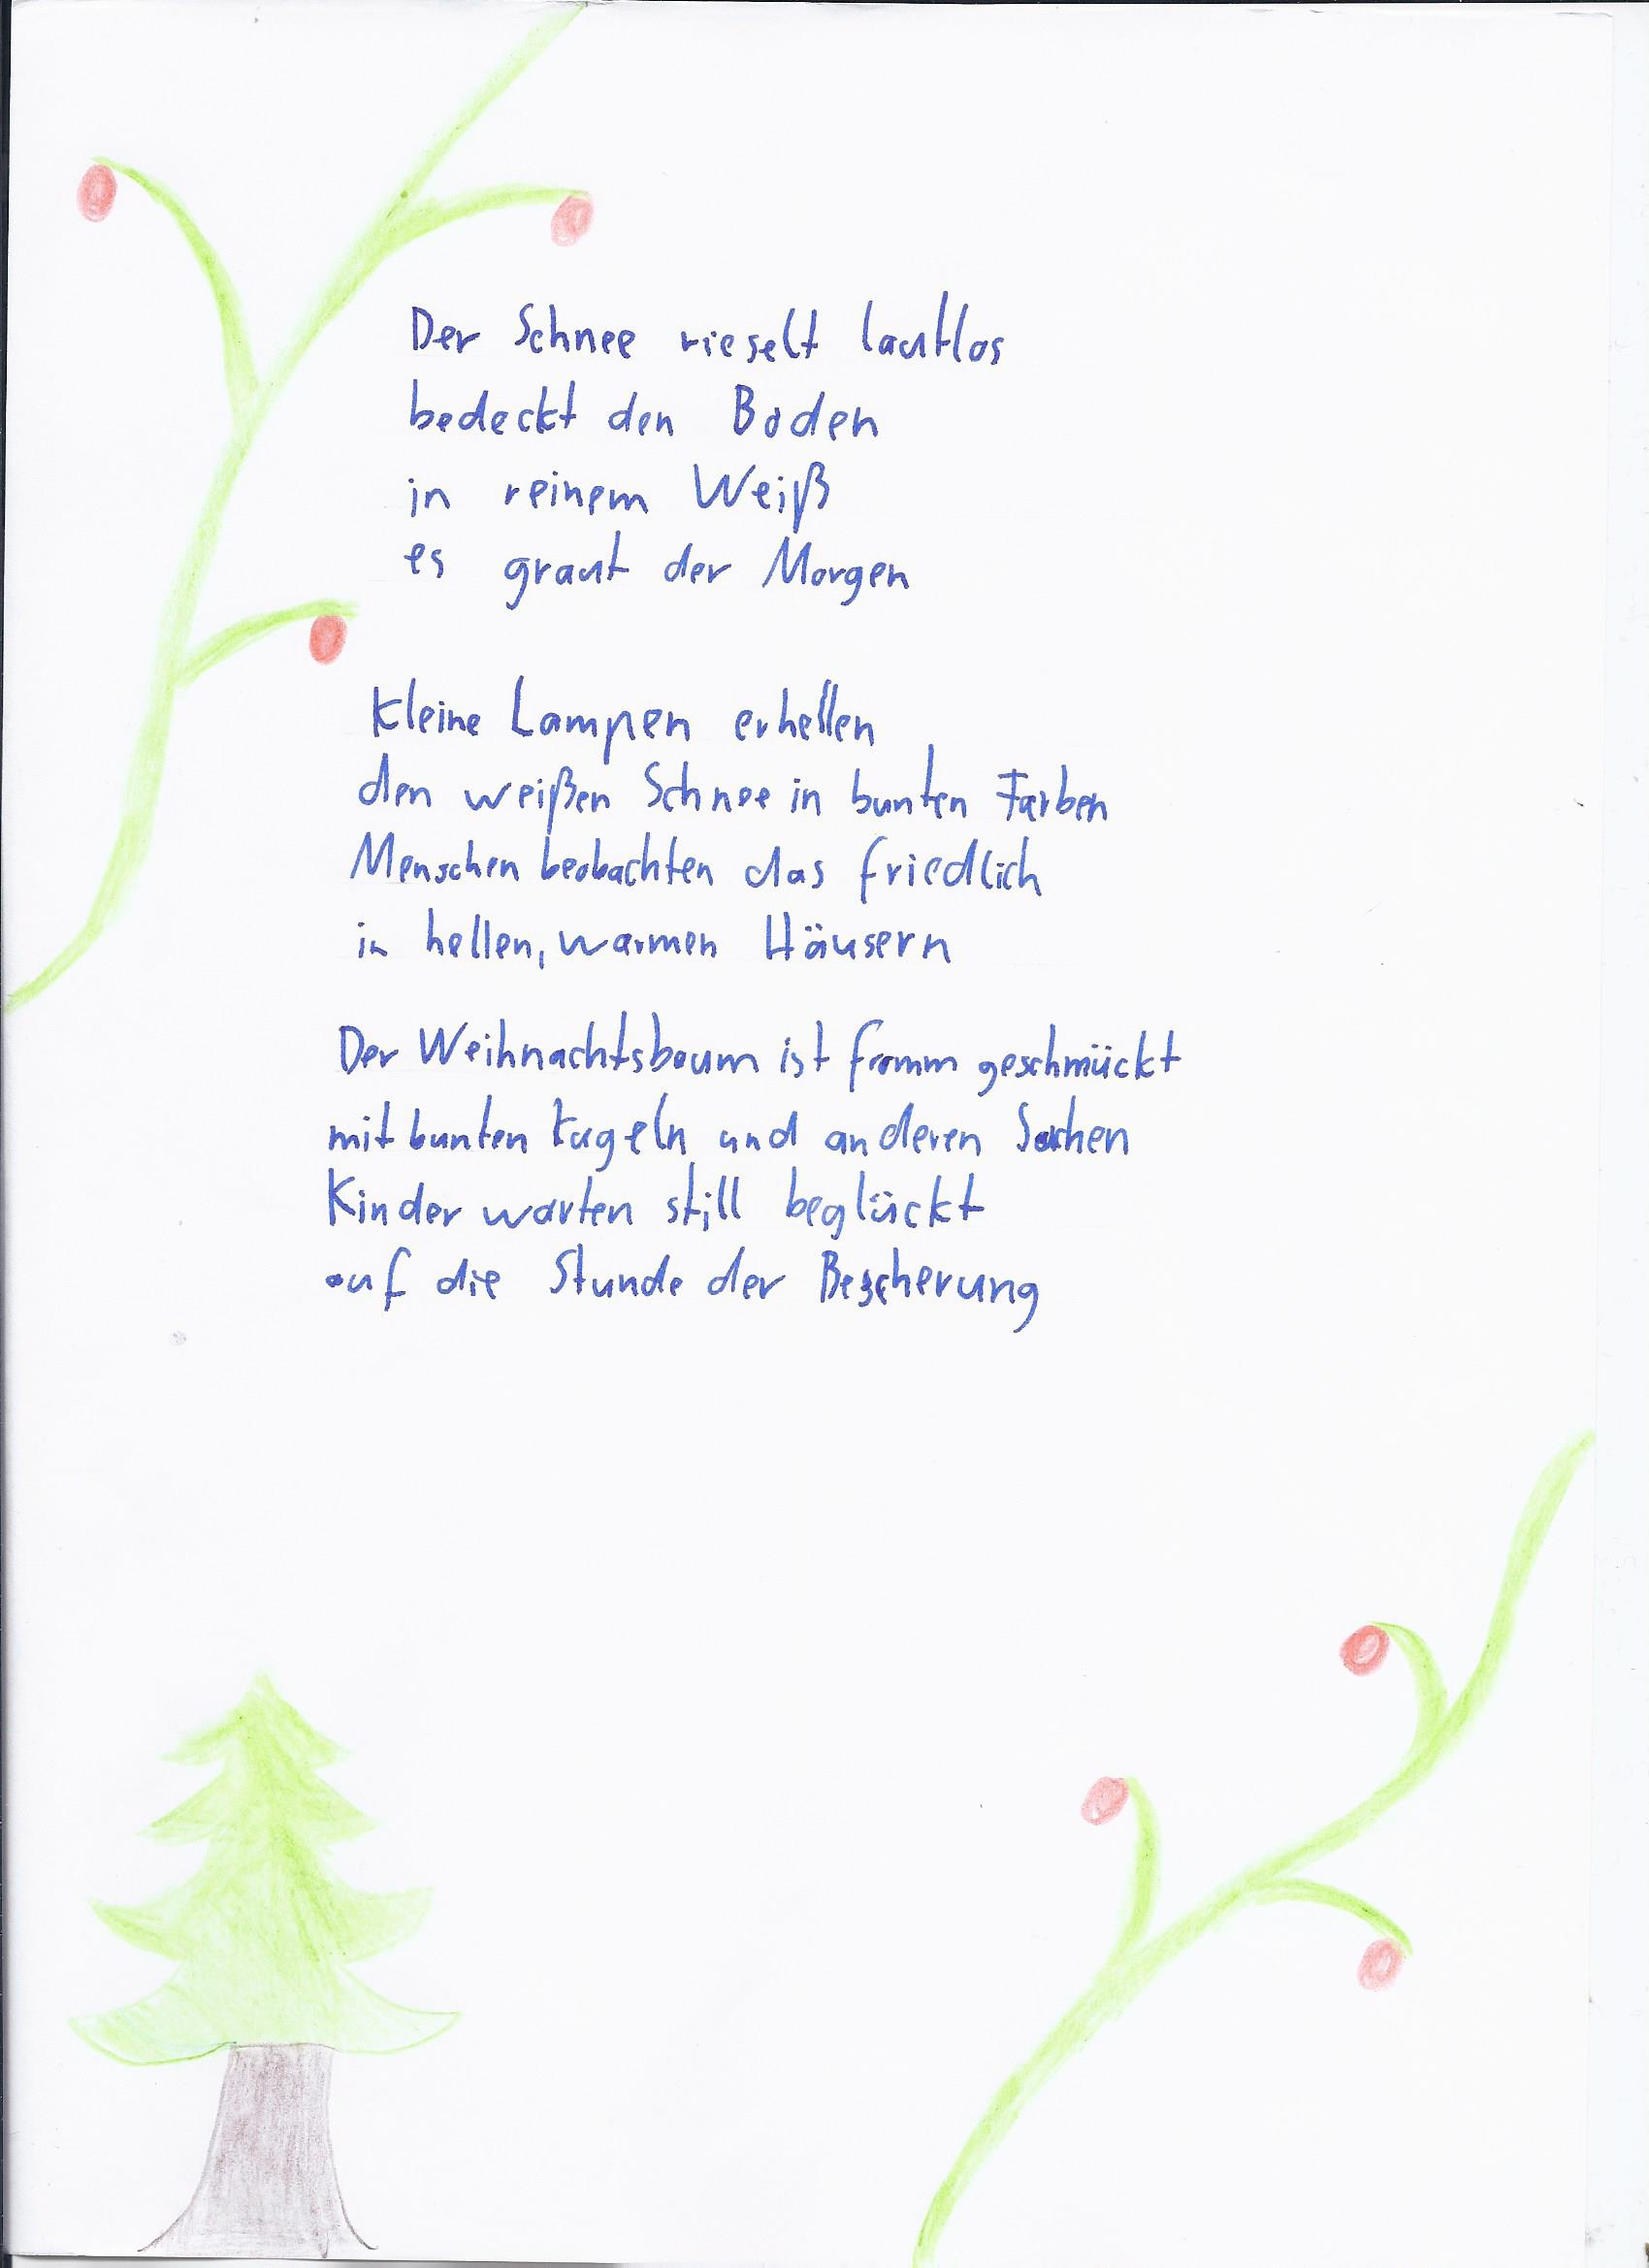 Der Schnee rieselt lautlos
bedeckt den Boden
in reinem Weiß
es graut der Morgen
Kleine Lampen erhellen
den weißen Schnee in bunten Farben
Menschen beobachten das friedlich
in hellen, warmen Häusern
Der Weihnachtsbaum ist fromm geschmückt
mit bunten Kugeln und anderen Sachen
Kinder warten still beglückt
auf die Stunde der Bescherung